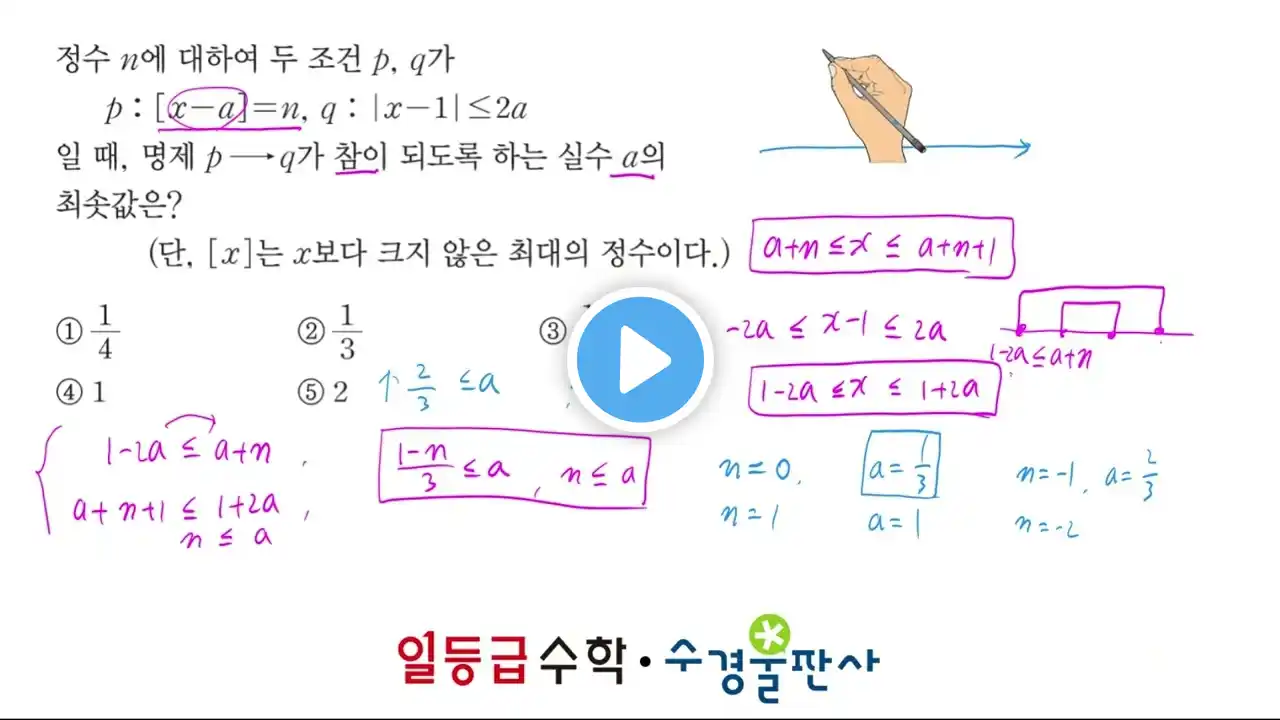 정수 n에 대하여 두 조건 p, q가
p : [x−a]=n, q : |x−1|≤2a
일 때, 명제 p→q가 참이 되도록 하는 실수 a의
최솟값은?
(단, [x]는 x보다 크지 않은 최대의 정수이다.)
① 1/4 ② 1/3 ③
④ 1 ⑤ 2
a+n ≤ x ≤ a+n+1
-2a ≤ x-1 ≤ 2a
1-2a ≤ a+n
1-2a ≤ x ≤ 1+2a
↑ 2/3 ≤ a
1-2a ≤ a+n ,
a+n+1 ≤ 1+2a ,
n ≤ a
(1-n)/3 ≤ a , n ≤ a
n=0, a=1/3 n=-1, a=2/3
n=1 a=1 n=-2
일등급 수학 · 수경출판사